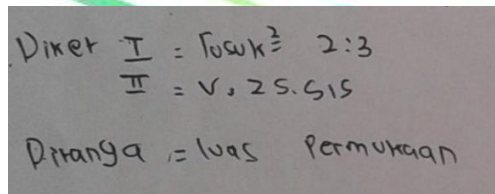 Diket I = rusuk² = 2:3
II = V. 25.515
Ditanya = luas Permukaan